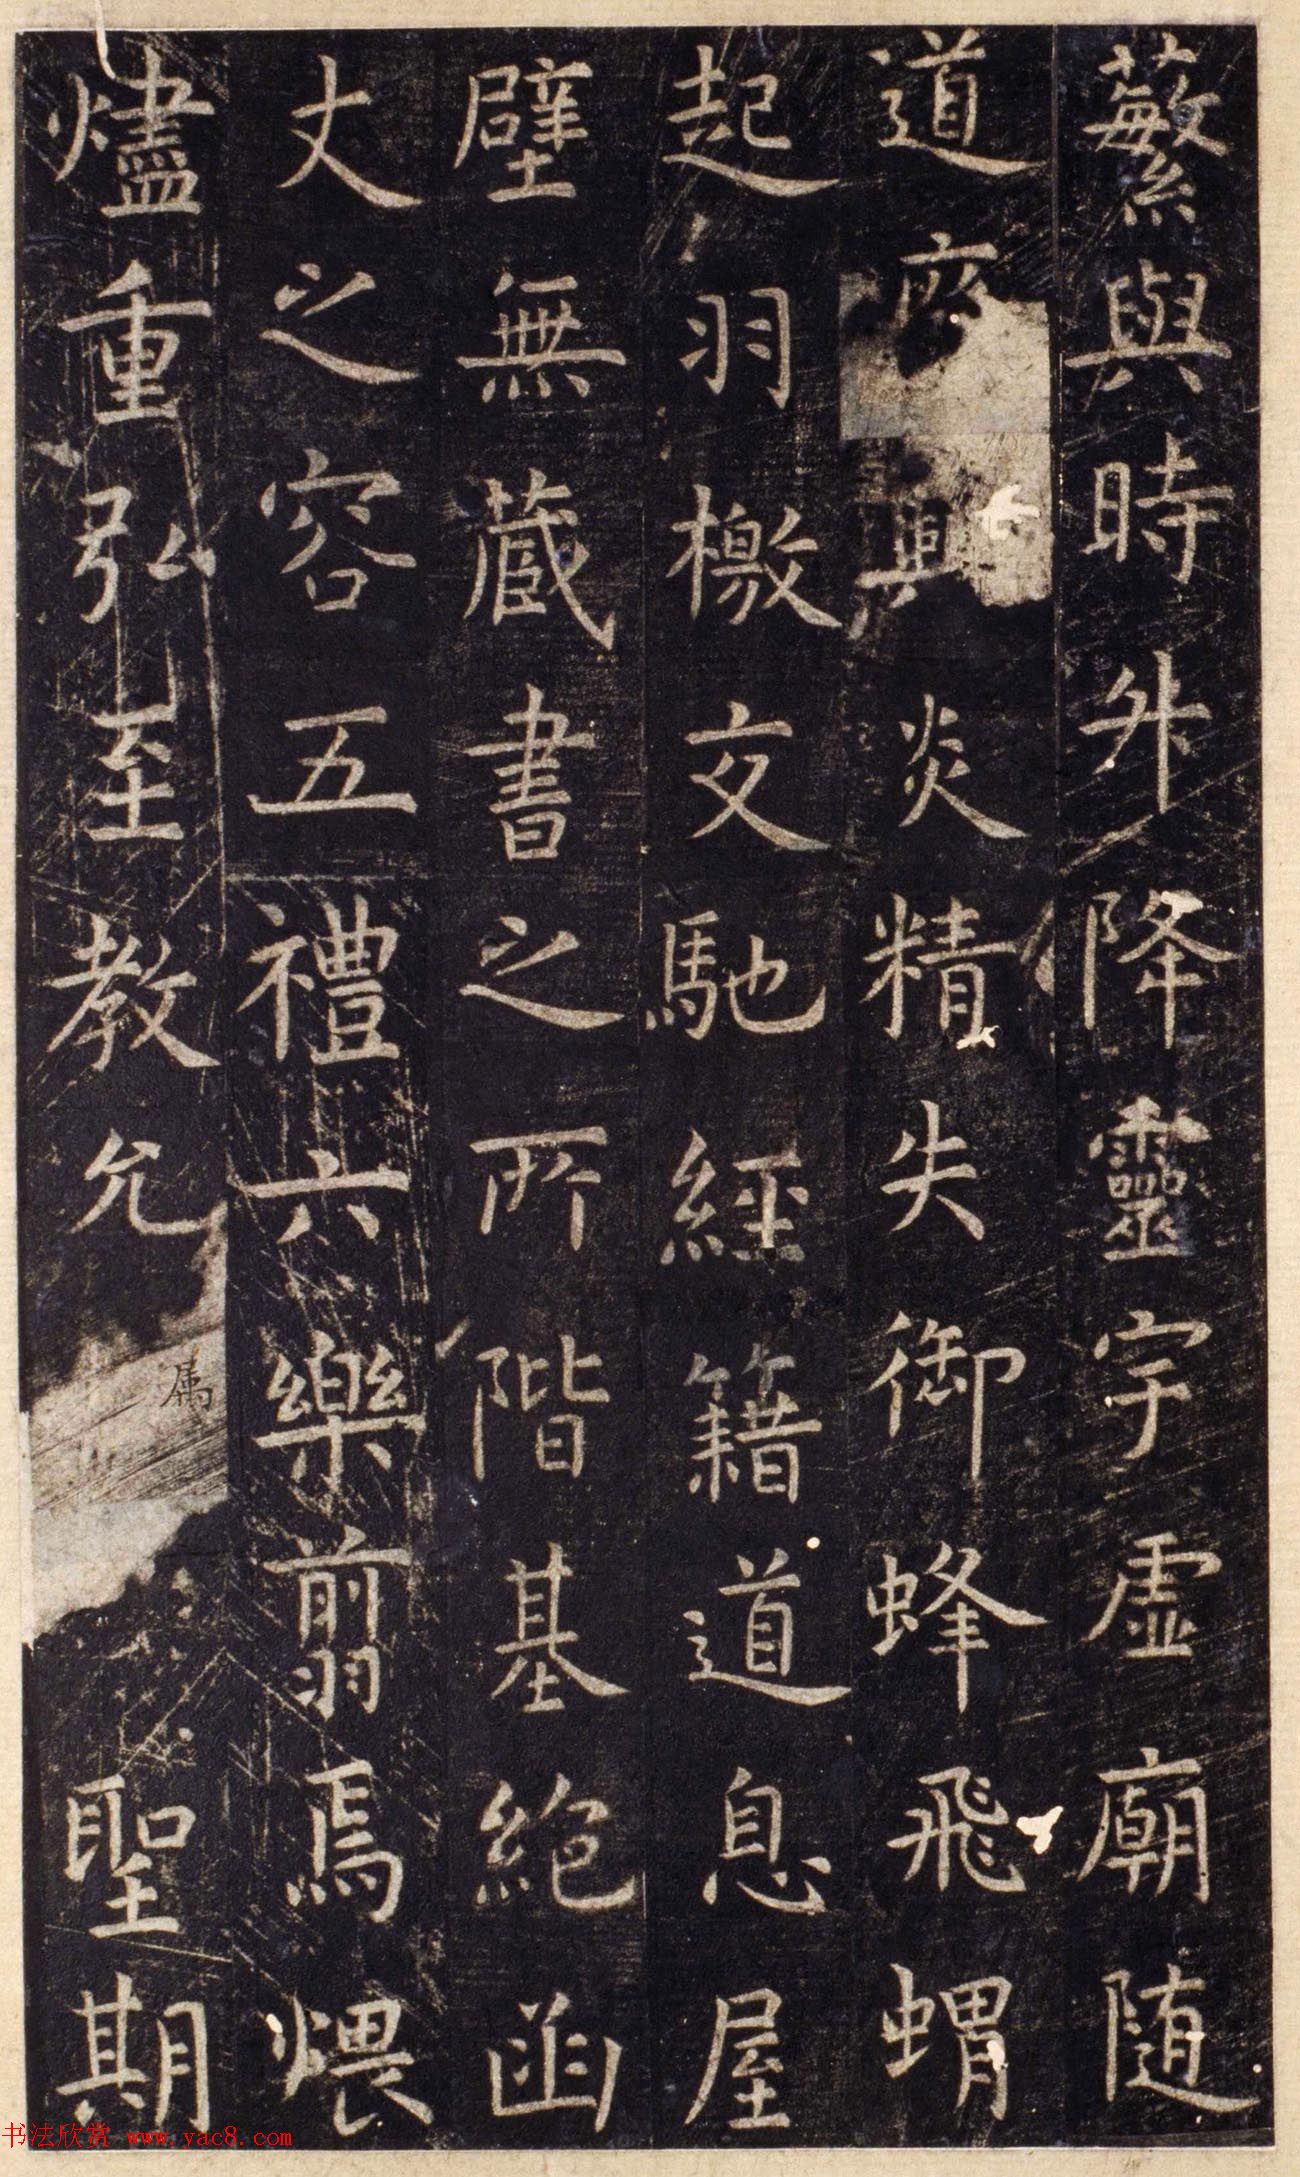 蘩與時升降靈宇虛廟隨
道廢興炎精失御蜂飛蝟
起羽檄交馳經籍道息屋
壁無藏書之所階基絕函
丈之容五禮六樂翦焉煨
燼重弘至教允属聖期
书法欣赏 www.yac8.com